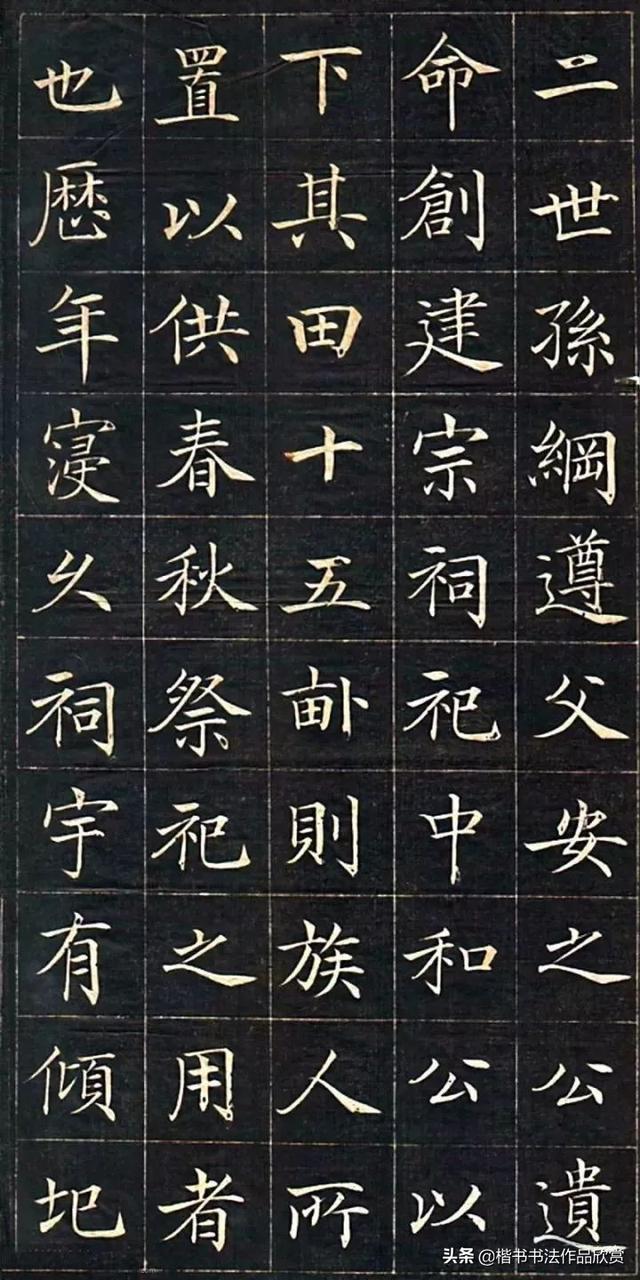 二世孫綱遵父安之公遺
命創建宗祠祀中和公以
下其田十五畝則族人所
置以供春秋祭祀之用者
也歷年寖久祠宇有傾圮
头条 @楷书书法作品欣赏